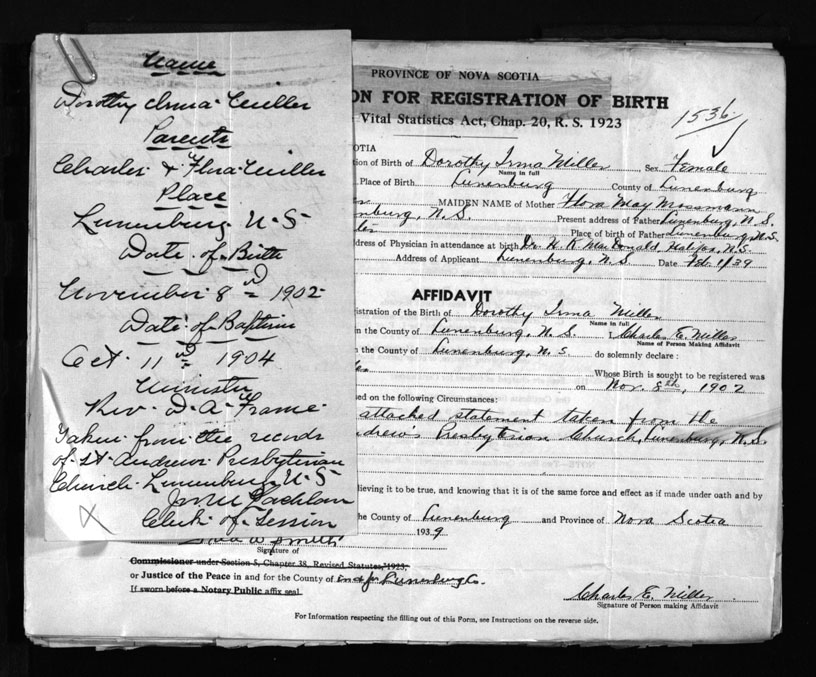 Name
Dorothy Irma Miller
Parents
Charles & Flora Miller
Place
Lunenburg N-S
Date of Birth
November 8 1902
Date of Baptism
Oct 11 1904
Minister
Rev. D. A. Frame
Taken from the records
of St Andrews Presbyterian
Church Lunenburg N-S
Clerk of Session
X
PROVINCE OF NOVA SCOTIA
ON FOR REGISTRATION OF BIRTH
Vital Statistics Act, Chap. 20, R. S. 1923
1536
OTIA
tion of Birth of Dorothy Irma Miller Sex Female
Name in full
Place of Birth Lunenburg County of Lunenburg
MAIDEN NAME of Mother Flora May Mossmann
nburg, N. S. Present address of Father Lunenburg, N. S.
ller Place of birth of Father Lunenburg, N.S.
ddress of Physician in attendance at birth Dr. H. K. MacDonald, Halifax, N.S.
Address of Applicant Lunenburg N. S. Date Feb. 1/39
AFFIDAVIT
istration of the Birth of Dorothy Irma Miller
Name in full
n the County of Lunenburg, N. S. Charles E. Miller
Name of Person Making Affidavit
n the County of Lunenburg, N. S. do solemnly declare :
Whose Birth is sought to be registered was
on Nov. 8th, 1902
sed on the following Circumstances:
attached statement taken from the
ndrew's Presbyterian Church, Lunenburg, N.S.
elieving it to be true, and knowing that it is of the same force and effect as if made under oath and by
the County of Lunenburg and Province of Nova Scotia
1939
Signature of
Commissioner under Section 5, Chapter 38, Revised Statutes, 1923,
or Justice of the Peace in and for the County of in & for Lunenburg Co.
If sworn before a Notary Public affix seal.
Charles E. Miller
Signature of Person making Affidavit
For Information respecting the filling out of this Form, see Instructions on the reverse side.